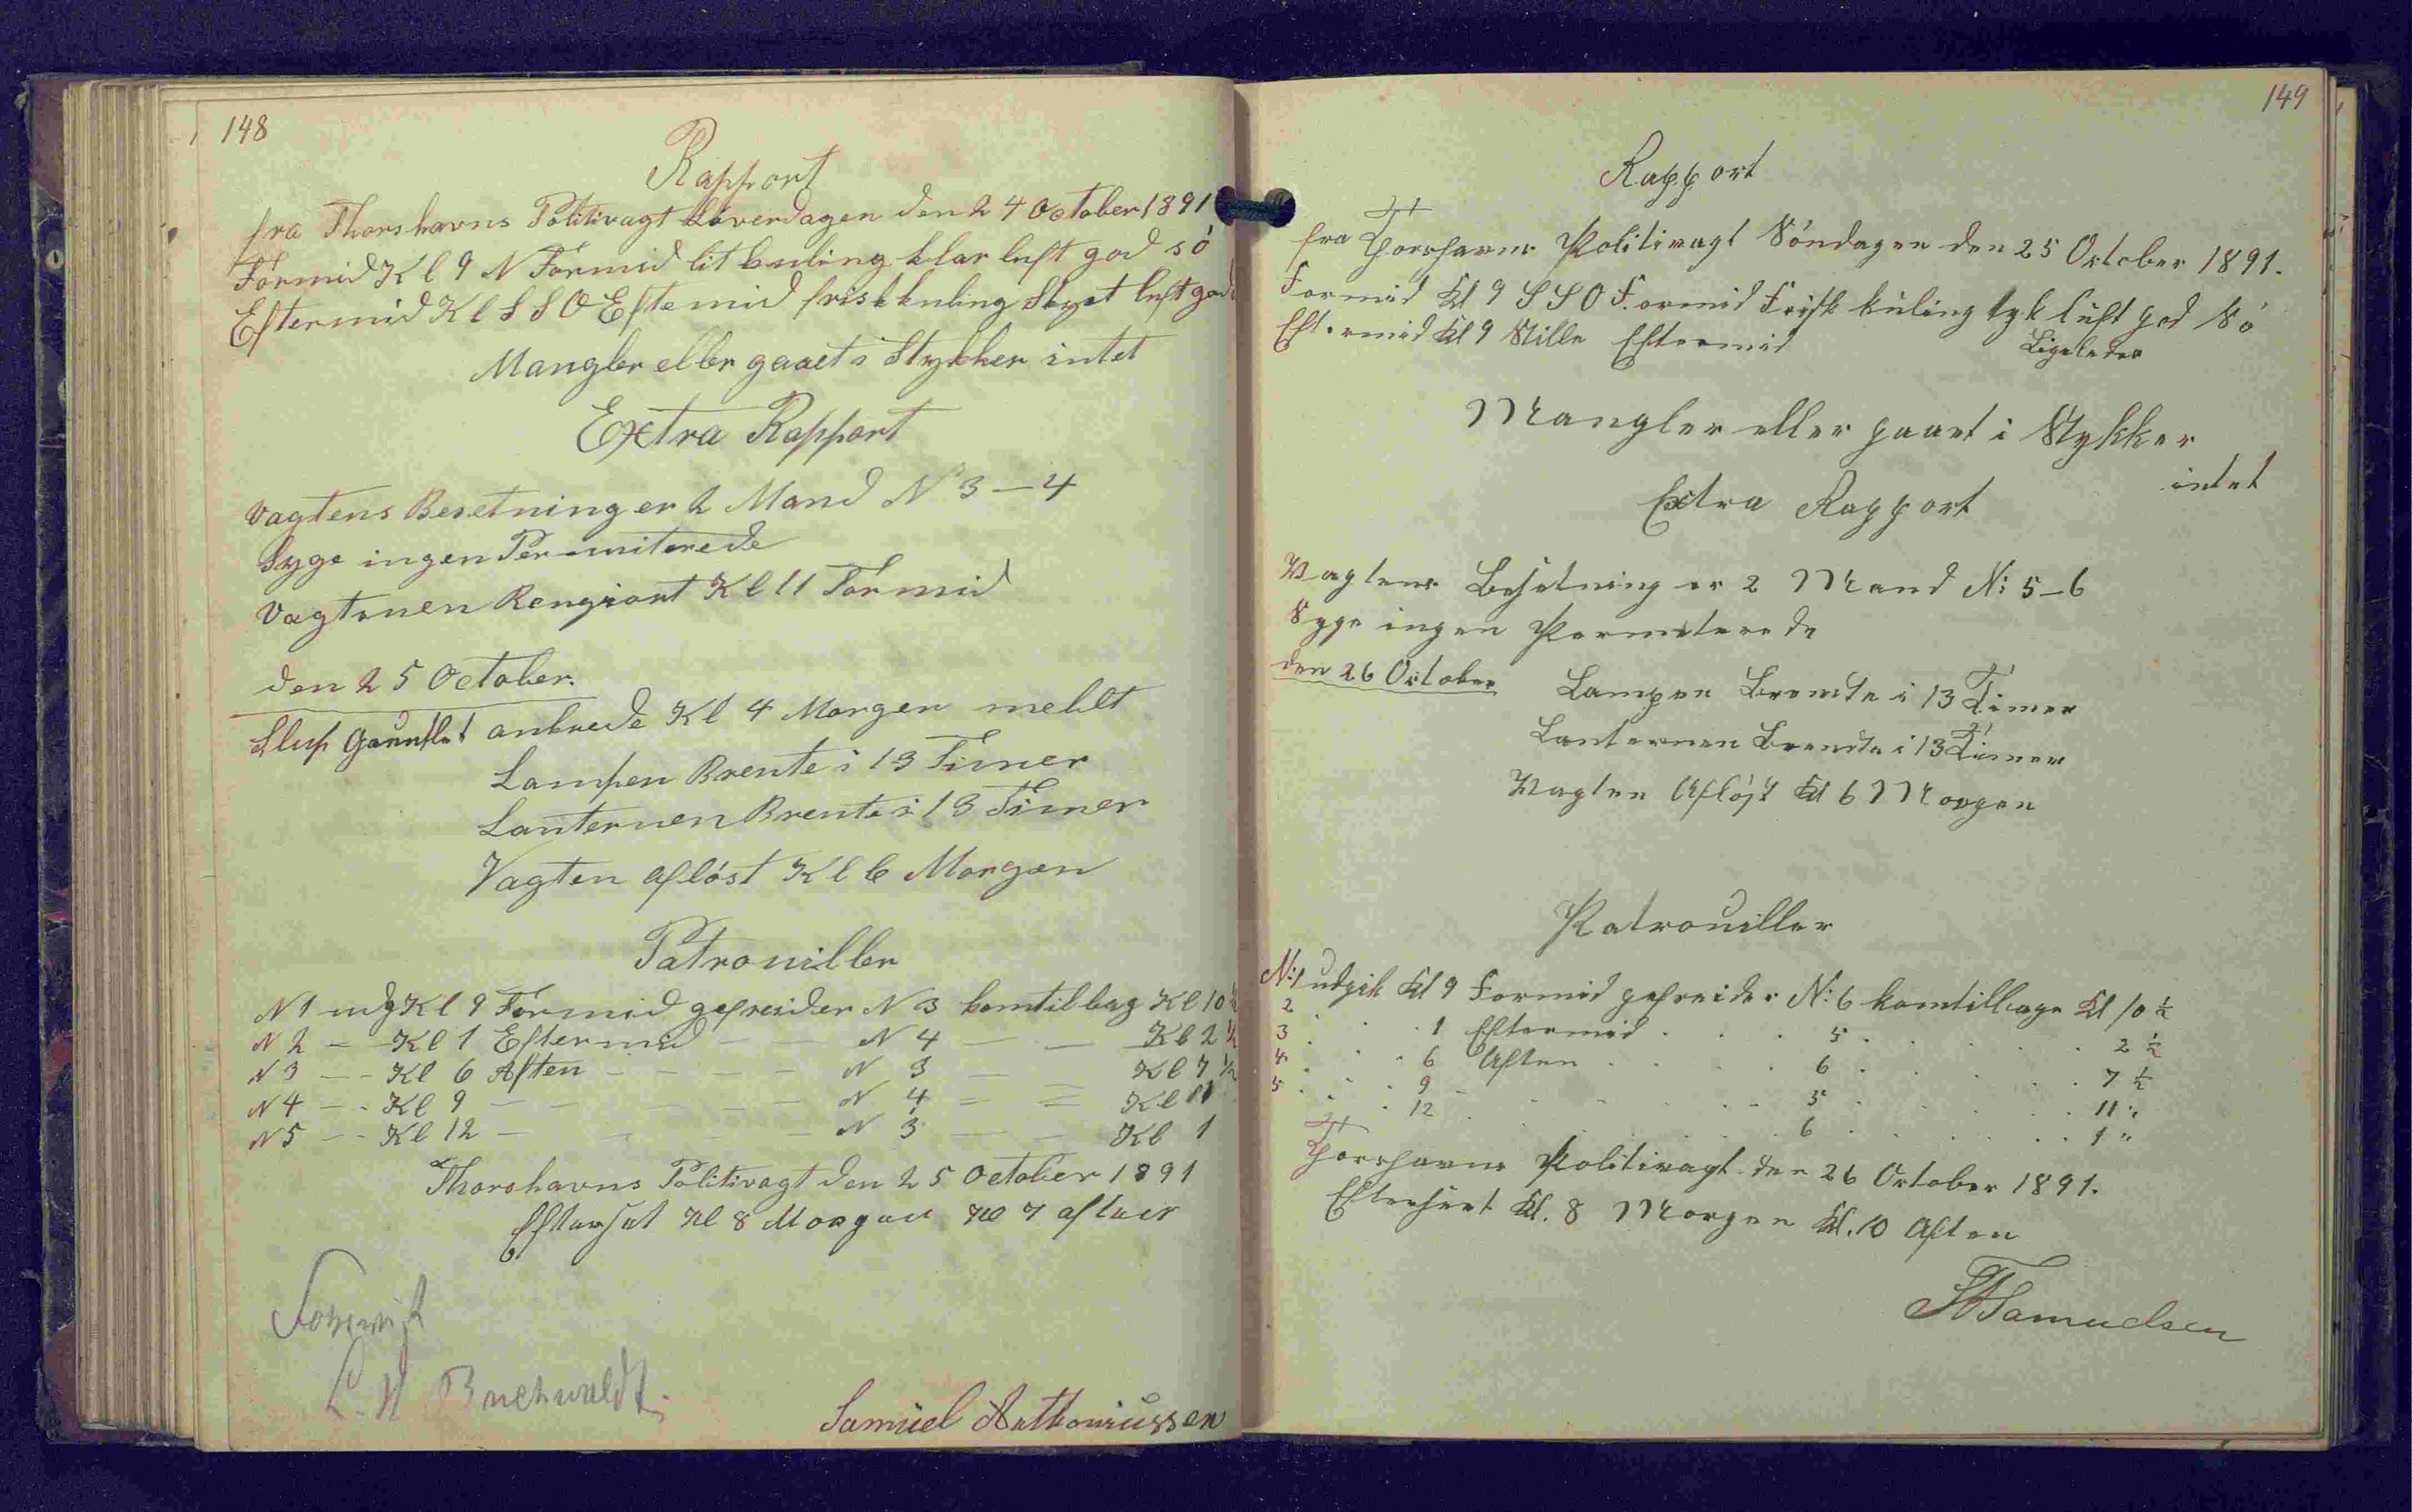 148
Rapport
fra Thorshavns Politivagt Löverdagen den 24 October 1891
Formid Kl 9 N Formid lit kuling klar luft god só
Eftermid Kl S S O Eftemid frisk kuling Skyet luft god
Mangler eller gaaet i Stykker intet
Extra Rapport
Vagtens Besetning er 2 Mand N 3 – 4
Syge ingen Permiterede
Vagtonen Rengiort Kl 11 Formid
den 25 October.
Slup ankrede Kl 4 Morgen meldt
Lampen Brente i 13 Timer
Lanternen Brente i 13 Timer
Vagten aflöst Kl 6 Morgen
Patrouiller
N 1 udg Kl 9 Formid gefreider N 3 komtilbag Kl 10 ½
N 2 – Kl 1 Eftermid – – N 4 – – Kl 2 ½
N 3 – – Kl 6 Aften – – – – N 3 – Kl 7 ½
N 4 – - Kl 9 – – – – – N 4 – – Kl 11
N 5 – - Kl 12 – – – N 3 – – Kl 1
Thorshavns Politivagt den 25 October 1891
Eftersat Kl 8 Morgen Kl 7 aften
L. H Buchwaldt
Samuel Anthoniussen
149
Rapport
fra Thorshavns Politivagt Söndagen den 25 October 1891.
Formid Kl 9 S S O Formid Frisk kuling tyk luft god Só
Eftermid Kl 9 Stille Eftermid Ligeledes
Mangler eller gaaet i Stykker
intet
Extra Rapport
Vagtens Besetning er 2 Mand N: 5–6
Syge ingen Permiterede
den 26 October Lampen Brendte i 13 Timer
Lanternen Brendte i 13 Timer
Vagten Aflöst Kl 6 Morgen
Patrouiller
N:1 udgik Kl 9 Formid gefreider N: 6 komtilbage Kl 10 ½
2 . . . 1 Eftermid . . . 5 . . . . . 2 ½
3 . . . 6 Aften . . . . 6 . . . . . 7 ½
4 . . . 9 . . . . . 5 . . . . . 11 "
5 . . . 12 . . . . . 6 . . . . . 1 "
Thorshavns Politivagt den 26 October 1891.
Efterseet Kl. 8 Morgen Kl. 10 Aften
Samuelsen